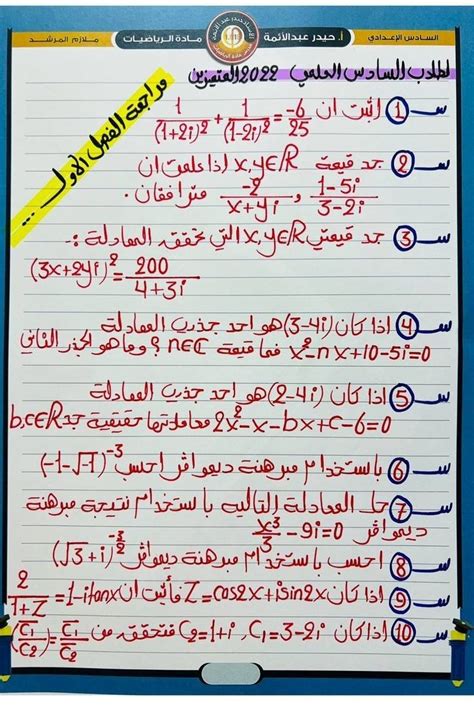 السادس الإعدادي
أ. حيدر عبدالأئمة
مادة الرياضيات
ملازم المرشد
لطلاب السادس العلمي 2022 المتميزين
مراجعة الفصل الاول ...
س1 اثبت ان 1/(1+2i)² + 1/(1-2i)² = -6/25
س2 جد قيمة x,y∈R اذا علمت ان
-2/(x+yi) , (1-5i)/(3-2i) مترافقان.
س3 جد قيمتي x,y∈R التي تحقق المعادلة :-
(3x+2yi)² = 200/(4+3i)
س4 اذا كان (3-4i) هو احد جذري المعادلة
x²-nx+10-5i=0 فما قيمة n∈C ؟ وما هو الجذر الثاني
س5 اذا كان (2-4i) هو احد جذري المعادلة
2x²-x-bx+c-6=0 معاملاتها حقيقية جد b,c∈R
س6 باستخدام مبرهنة ديموافر احسب (-1-√-1)⁻³
س7 حل المعادلة التاليه باستخدام نتيجة مبرهنة
ديموافر x³/3 - 9i=0
س8 احسب باستخدام مبرهنة ديموافر (√3+i)^(-3/2)
س9 اذا كان Z=cos2x+isin2x فأثبت ان 2/(1+Z) = 1-itanx
س10 اذا كان C₁=3-2i , C₂=1+i فتحقق من (C̅₁/C₂) = C̅₁/C̅₂